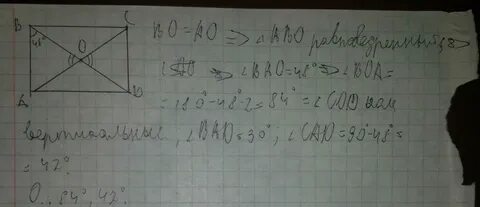 B
C
48°
O
A
D
BO = AO => ∠ABO равнобедренный =>
=> ∠BAO = 48° => ∠BOA =
= 180° - 48° · 2 = 84° = ∠COD как
вертикальные, ∠BAD = 90°; ∠CAD = 90° - 48° =
= 42°.
О.: 84°, 42°.